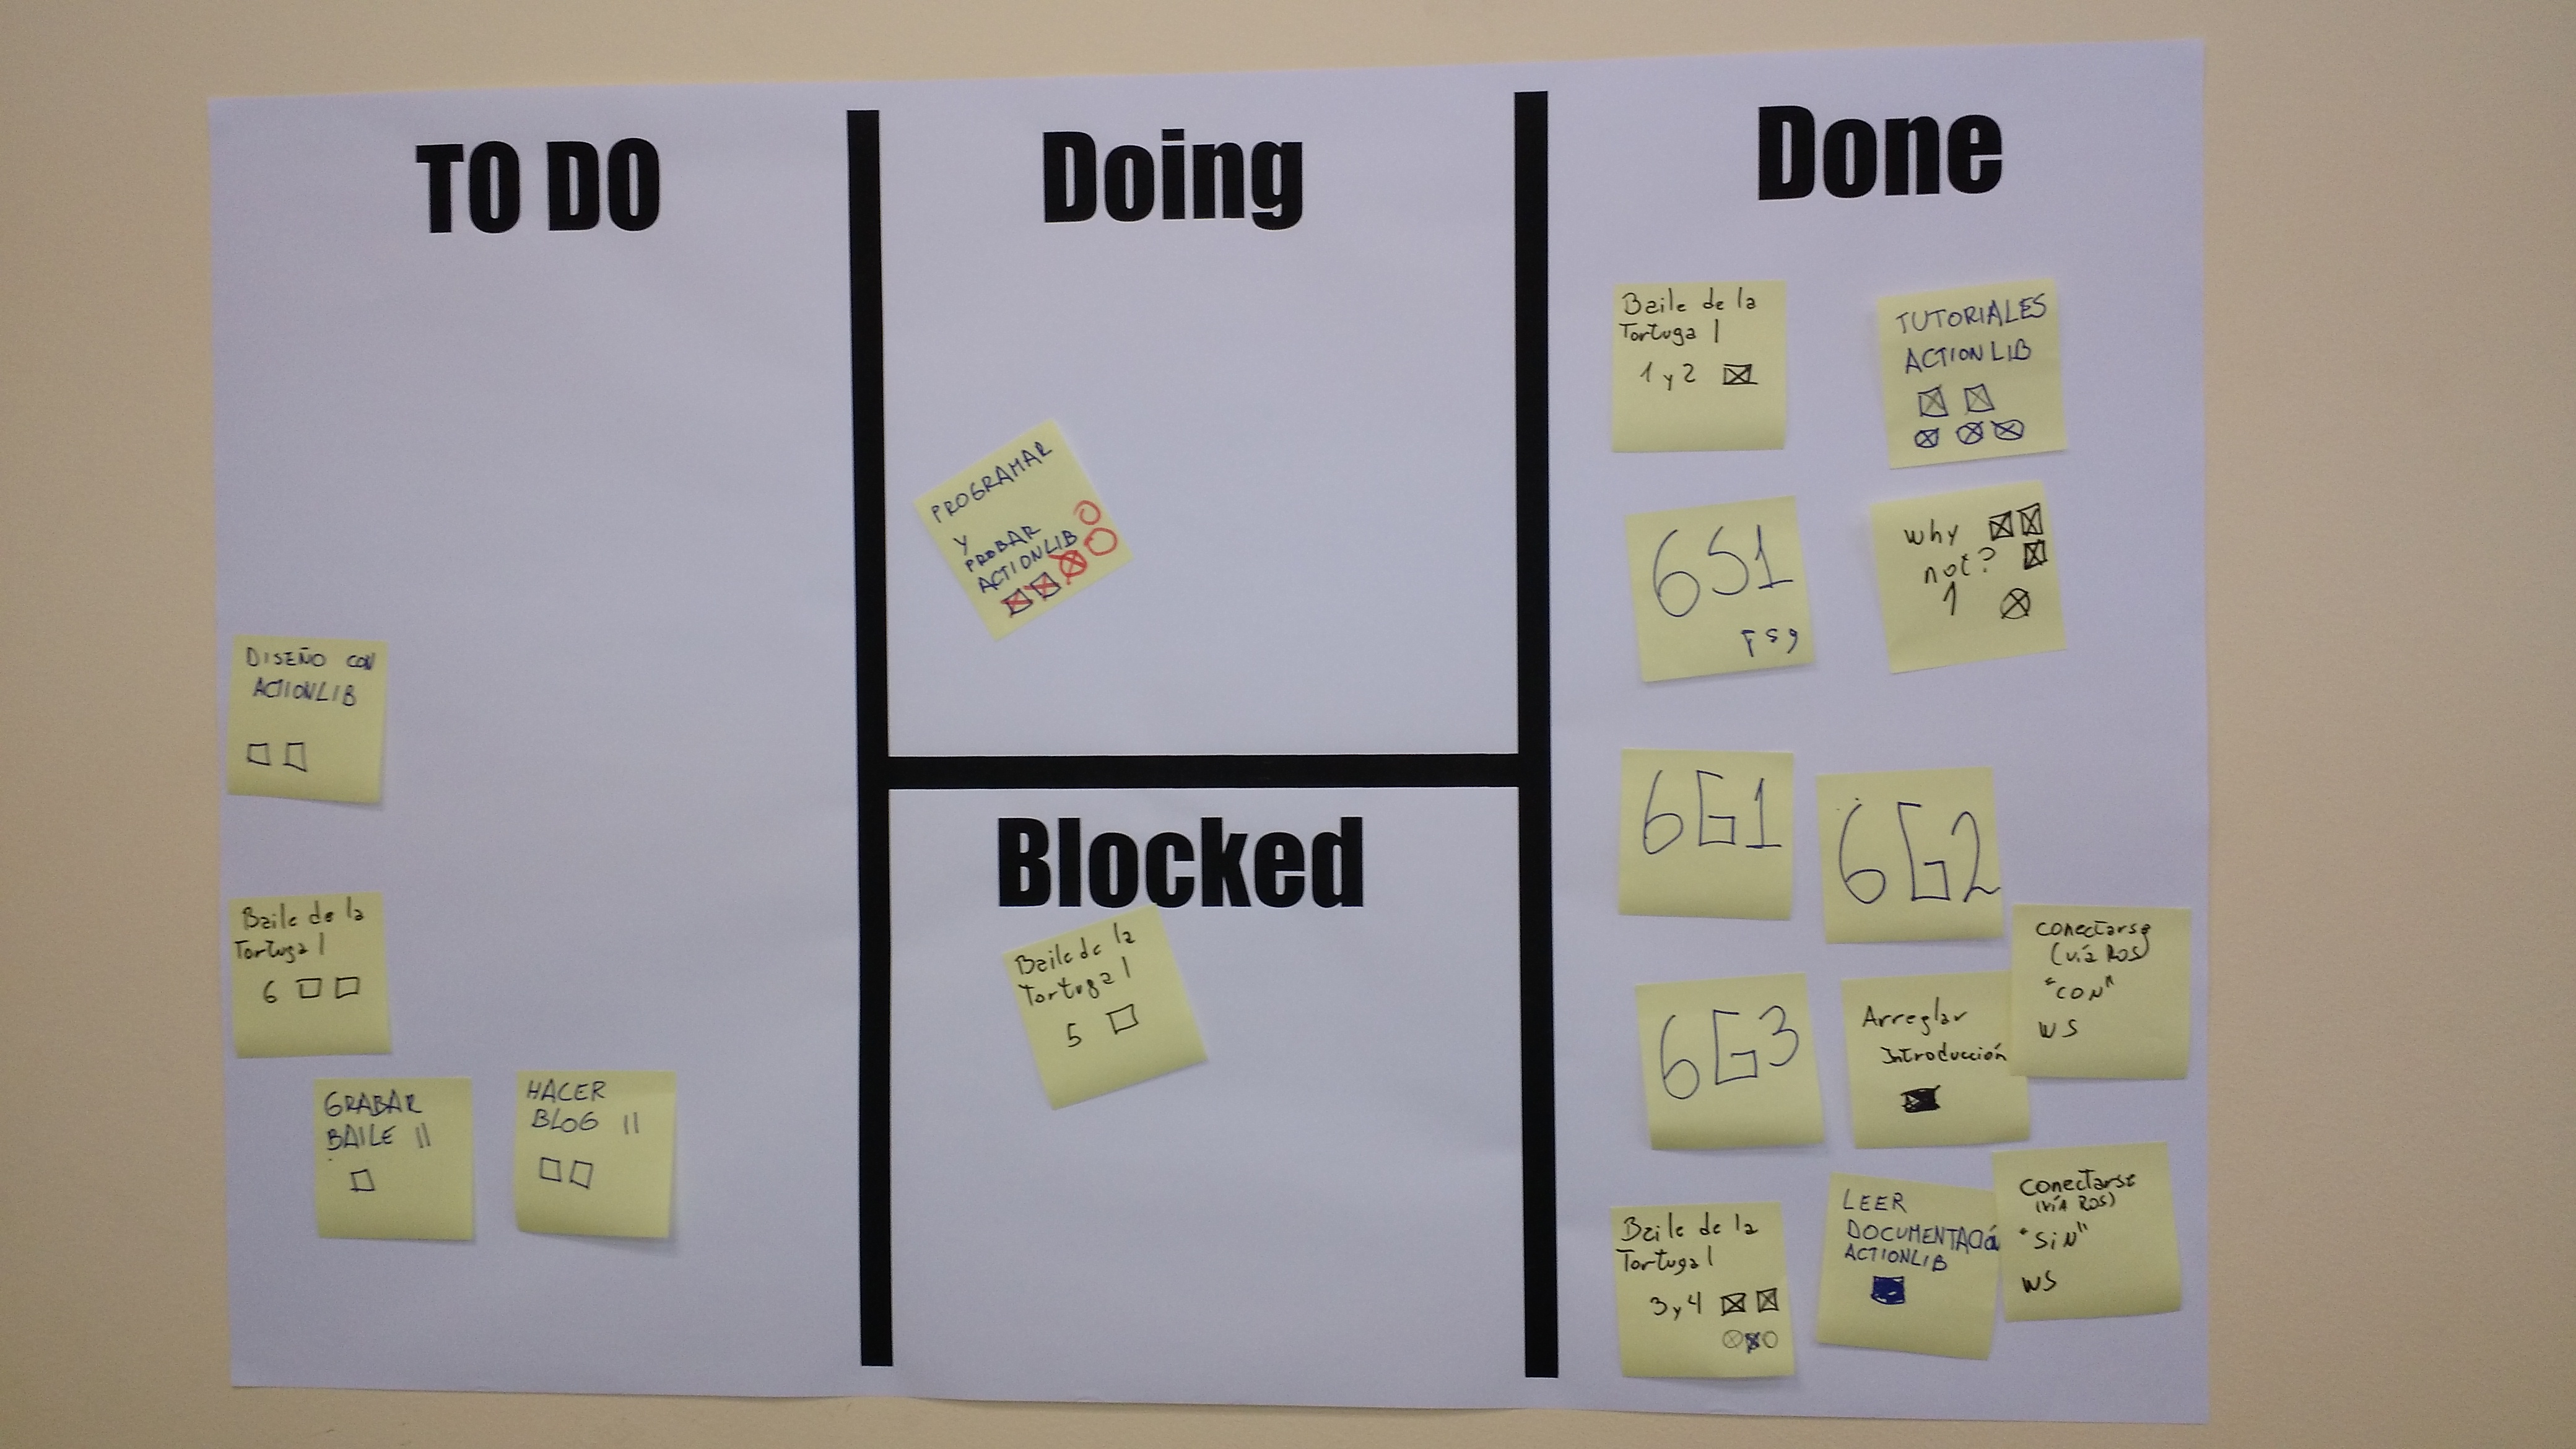 TO DO
DISEÑO CON
ACTIONLIB
Baile de la
Tortuga 1
6
GRABAR
BAILE II
HACER
BLOG II
Doing
PROGRAMAR
Y
PROBAR
ACTIONLIB
Blocked
Baile de la
Tortuga 1
5
Done
Baile de la
Tortuga 1
1 y 2
TUTORIALES
ACTIONLIB
6S1
why
not?
1
6G1
6G2
6G3
Arreglar
Introducción
conectarse
(vía ROS)
"CON"
WS
Baile de la
Tortuga 1
3 y 4
LEER
DOCUMENTACIÓ
ACTIONLIB
Conectarse
(VÍA ROS)
"SiN"
WS